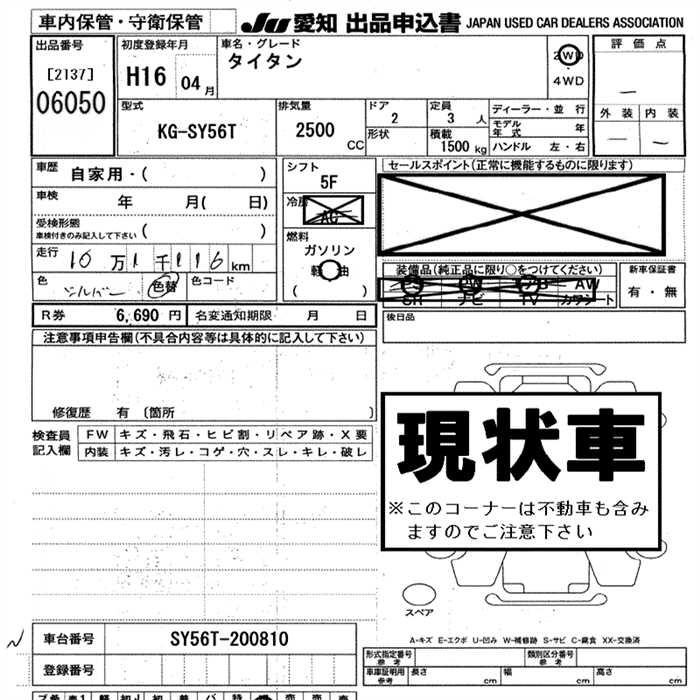 車内保管・守衛保管
JU 愛知 出品申込書 JAPAN USED CAR DEALERS ASSOCIATION
出品番号
[2137]
06050
初度登録年月
H16 04 月
車名・グレード
タイタン
2WD
4WD
評価点
—
外装 内装
— —
型式
KG-SY56T
排気量
2500 CC
ドア
2
形状
定員
3 人
積載
1500 kg
ディーラー・並行
モデル年式 年
ハンドル 左・右
車歴 自家用・( )
車検 年 月( 日)
受検形態
車検付きのみ記入して下さい ( )
走行 10万1千116km
色 シルバー 色替 色コード
シフト
5F
冷房
AC
燃料
ガソリン
軽油
( )
セールスポイント(正常に機能するものに限ります)
装備品(純正品に限り○をつけてください)
PS PW AB AW
SR ナビ TV カワシート
新車保証書
有・無
R券 6,690 円 名変通知期限 月 日
後日品
注意事項申告欄(不具合内容等は具体的に記入して下さい)
修復歴 有 〔箇所 〕
検査員記入欄
FW キズ・飛石・ヒビ割・リペア跡・X要
内装 キズ・汚レ・コゲ・穴・スレ・キレ・破レ
現状車
※このコーナーは不動車も含み
ますのでご注意下さい
スペア
A-キズ E-エクボ U-凹み W-補修跡 S-サビ C-腐食 XX-交換済
車台番号 SY56T-200810
登録番号
形式指定番号
参考
類別区分番号
参考
車庫証明用
参考
長さ cm 幅 cm 高さ cm